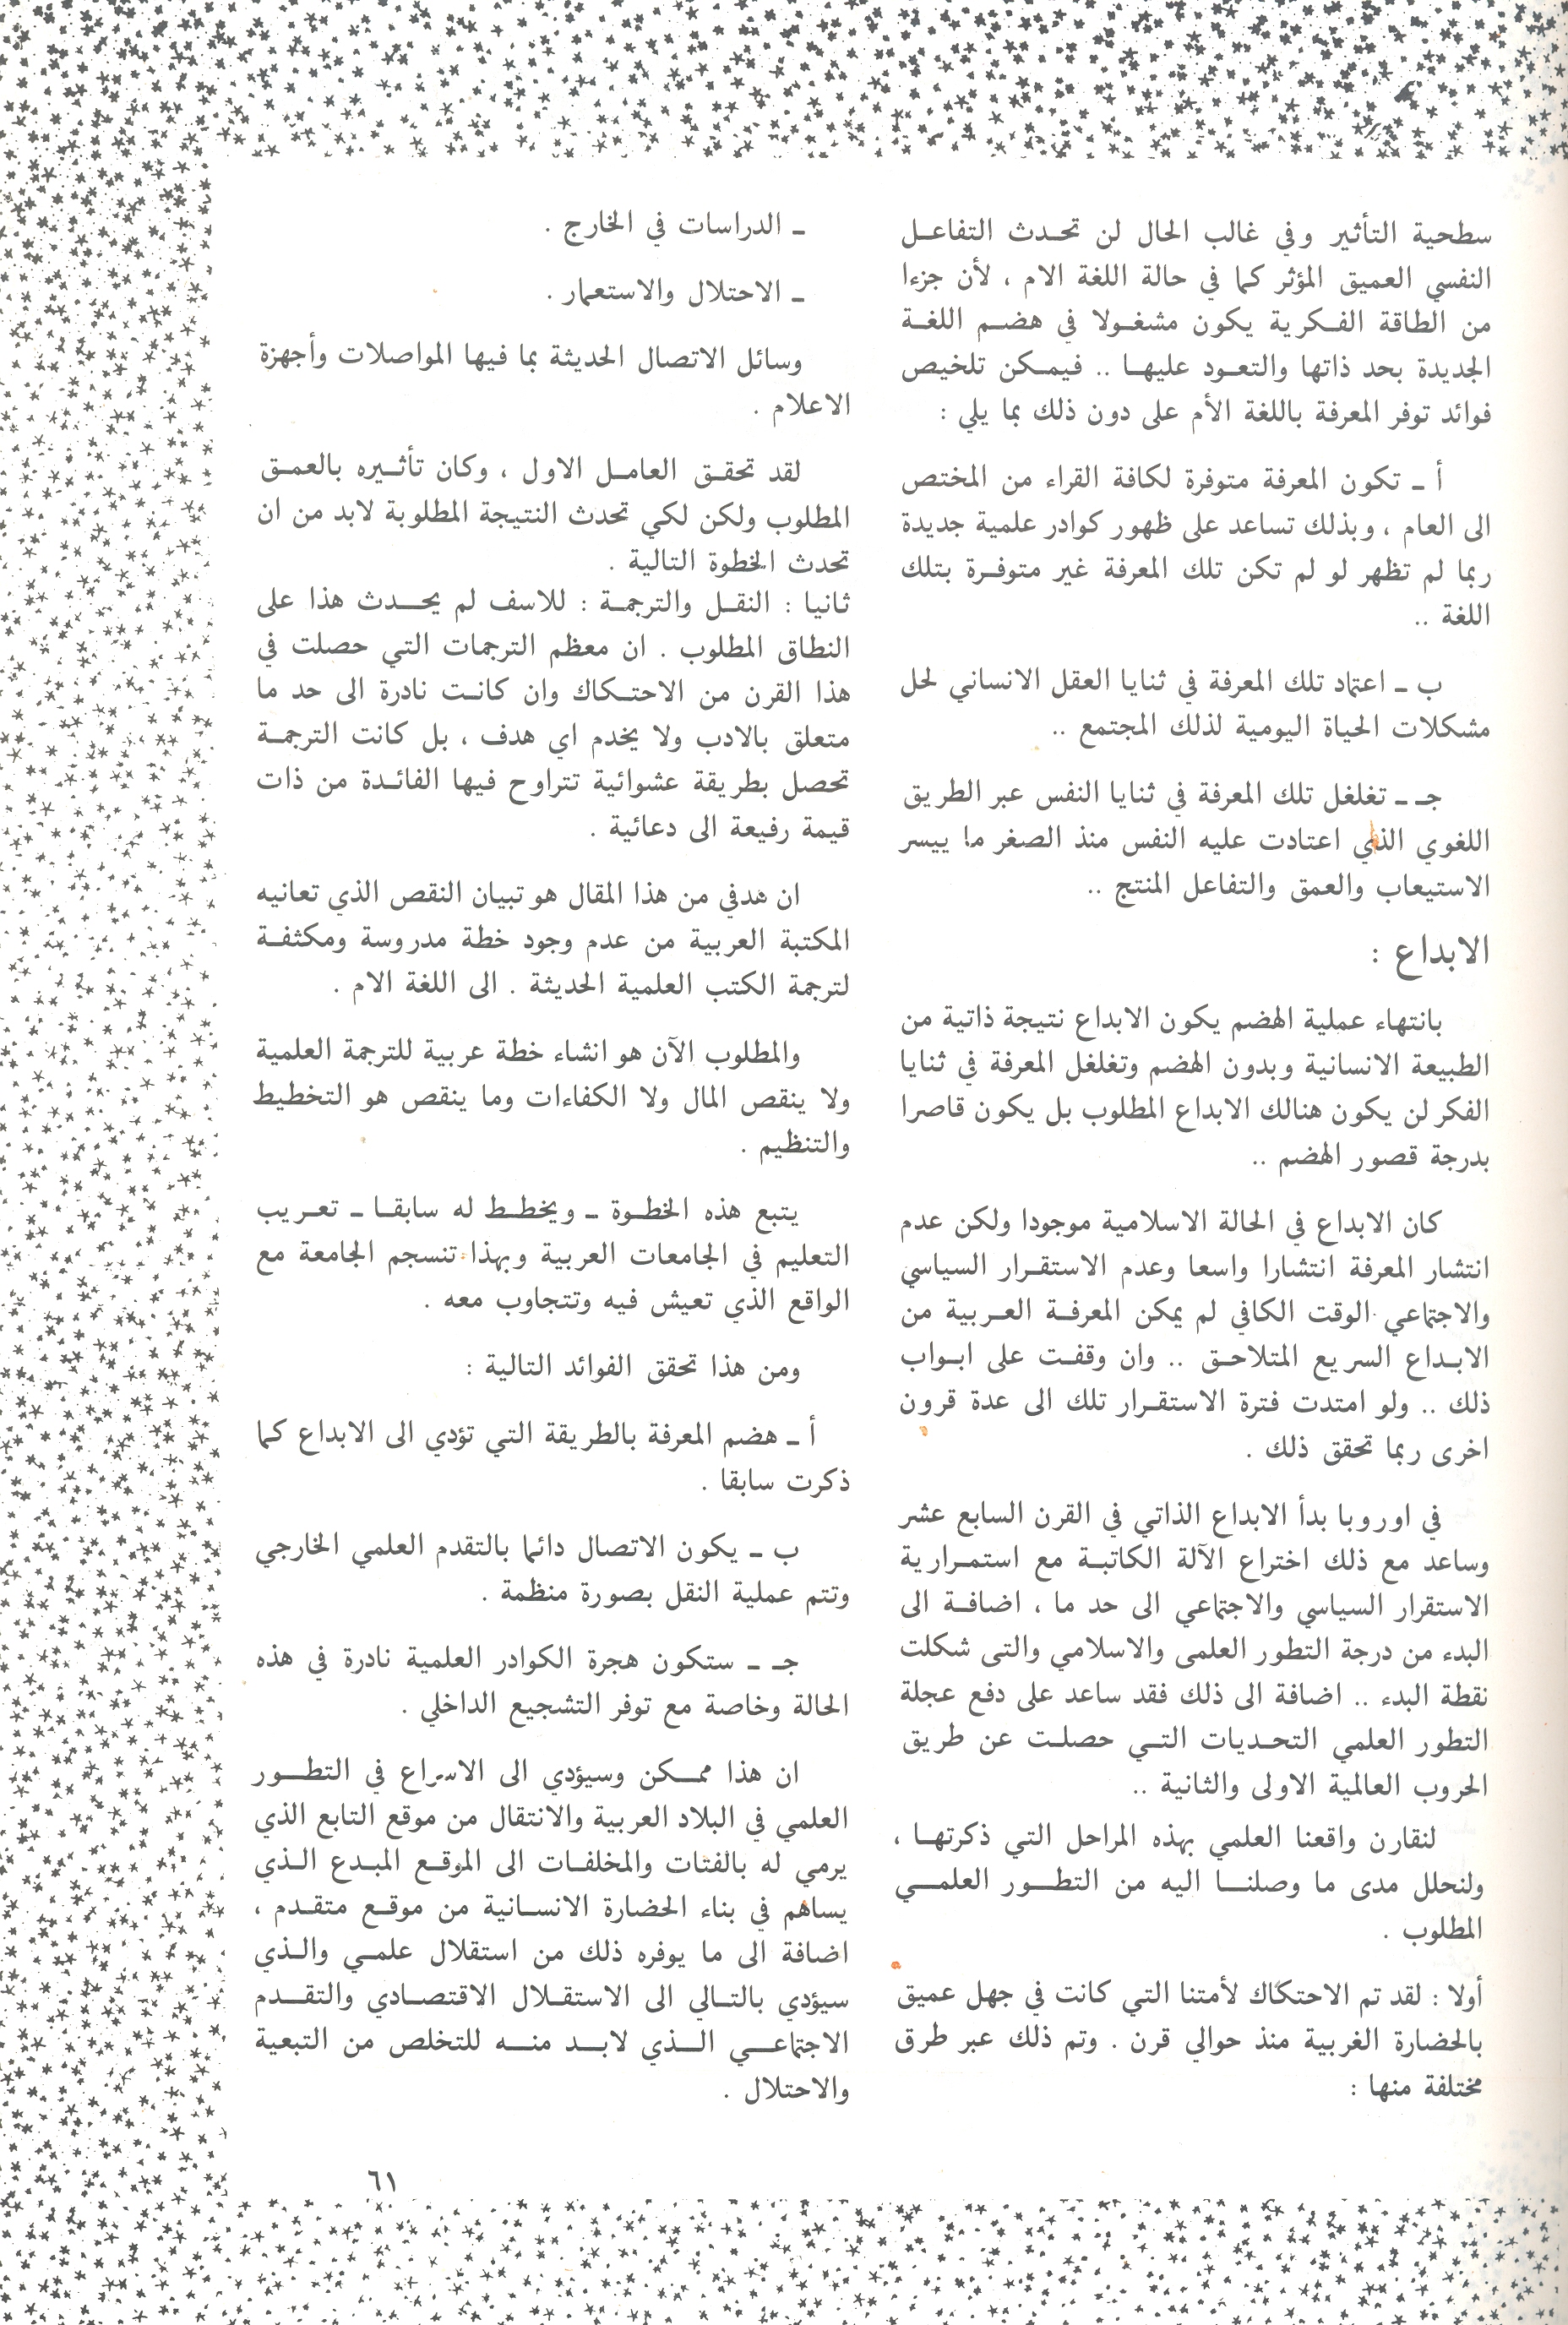 سطحية التأثير وفي غالب الحال لن تحدث التفاعل
النفسي العميق المؤثر كما في حالة اللغة الام ، لأن جزءا
من الطاقة الفكرية يكون مشغولا في هضم اللغة
الجديدة بحد ذاتها والتعود عليها .. فيمكن تلخيص
فوائد توفر المعرفة باللغة الأم على دون ذلك بما يلي :
أ ـ تكون المعرفة متوفرة لكافة القراء من المختص
الى العام ، وبذلك تساعد على ظهور كوادر علمية جديدة
ربما لم تظهر لو لم تكن تلك المعرفة غير متوفرة بتلك
اللغة ..
ب ـ اعتماد تلك المعرفة في ثنايا العقل الانساني لحل
مشكلات الحياة اليومية لذلك المجتمع ..
جـ ـ تغلغل تلك المعرفة في ثنايا النفس عبر الطريق
اللغوي الذي اعتادت عليه النفس منذ الصغر ما ييسر
الاستيعاب والعمق والتفاعل المنتج ..
الابداع :
بانتهاء عملية الهضم يكون الابداع نتيجة ذاتية من
الطبيعة الانسانية وبدون الهضم وتغلغل المعرفة في ثنايا
الفكر لن يكون هنالك الابداع المطلوب بل يكون قاصرا
بدرجة قصور الهضم ..
كان الابداع في الحالة الاسلامية موجودا ولكن عدم
انتشار المعرفة انتشارا واسعا وعدم الاستقرار السياسي
والاجتماعي الوقت الكافي لم يمكن المعرفة العربية من
الابداع السريع المتلاحق .. وان وقفت على ابواب
ذلك .. ولو امتدت فترة الاستقرار تلك الى عدة قرون
اخرى ربما تحقق ذلك .
في اوروبا بدأ الابداع الذاتي في القرن السابع عشر
وساعد مع ذلك اختراع الآلة الكاتبة مع استمرارية
الاستقرار السياسي والاجتماعي الى حد ما ، اضافة الى
البدء من درجة التطور العلمى والاسلامي والتى شكلت
نقطة البدء .. اضافة الى ذلك فقد ساعد على دفع عجلة
التطور العلمي التحديات التي حصلت عن طريق
الحروب العالمية الاولى والثانية ..
لنقارن واقعنا العلمي بهذه المراحل التي ذكرتها ،
ولنحلل مدى ما وصلنا اليه من التطور العلمي
المطلوب .
أولا : لقد تم الاحتكاك لأمتنا التي كانت في جهل عميق
بالحضارة الغربية منذ حوالي قرن . وتم ذلك عبر طرق
مختلفة منها :
ـ الدراسات في الخارج .
ـ الاحتلال والاستعمار .
وسائل الاتصال الحديثة بما فيها المواصلات وأجهزة
الاعلام .
لقد تحقق العامل الاول ، وكان تأثيره بالعمق
المطلوب ولكن لكي تحدث النتيجة المطلوبة لابد من ان
تحدث الخطوة التالية .
ثانيا : النقل والترجمة : للاسف لم يحدث هذا على
النطاق المطلوب . ان معظم الترجمات التي حصلت في
هذا القرن من الاحتكاك وان كانت نادرة الى حد ما
متعلق بالادب ولا يخدم اي هدف ، بل كانت الترجمة
تحصل بطريقة عشوائية تتراوح فيها الفائدة من ذات
قيمة رفيعة الى دعائية .
ان هدفي من هذا المقال هو تبيان النقص الذي تعانيه
المكتبة العربية من عدم وجود خطة مدروسة ومكثفة
لترجمة الكتب العلمية الحديثة . الى اللغة الام .
والمطلوب الآن هو انشاء خطة عربية للترجمة العلمية
ولا ينقص المال ولا الكفاءات وما ينقص هو التخطيط
والتنظيم .
يتبع هذه الخطوة ـ ويخطط له سابقا ـ تعريب
التعليم في الجامعات العربية وبهذا تنسجم الجامعة مع
الواقع الذي تعيش فيه وتتجاوب معه .
ومن هذا تحقق الفوائد التالية :
أ ـ هضم المعرفة بالطريقة التي تؤدي الى الابداع كما
ذكرت سابقا .
ب ـ يكون الاتصال دائما بالتقدم العلمي الخارجي
وتتم عملية النقل بصورة منظمة .
جـ ـ ستكون هجرة الكوادر العلمية نادرة في هذه
الحالة وخاصة مع توفر التشجيع الداخلي .
ان هذا ممكن وسيؤدي الى الاسراع في التطور
العلمي في البلاد العربية والانتقال من موقع التابع الذي
يرمي له بالفتات والمخلفات الى الموقع المبدع الذي
يساهم في بناء الحضارة الانسانية من موقع متقدم ،
اضافة الى ما يوفره ذلك من استقلال علمي والذي
سيؤدي بالتالي الى الاستقلال الاقتصادي والتقدم
الاجتماعي الذي لابد منه للتخلص من التبعية
والاحتلال .
٦١